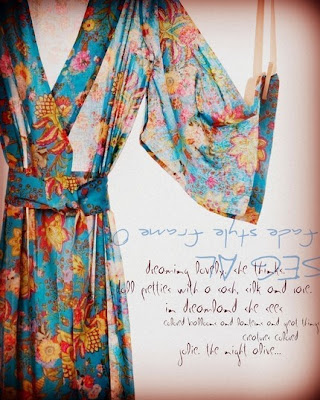 fade style frame
dreaming lovely, she thinks
all pretties with a sash, silk and
in dreamland she sees
colored balloons and lanterns and great things
creatures colored
the night alive...